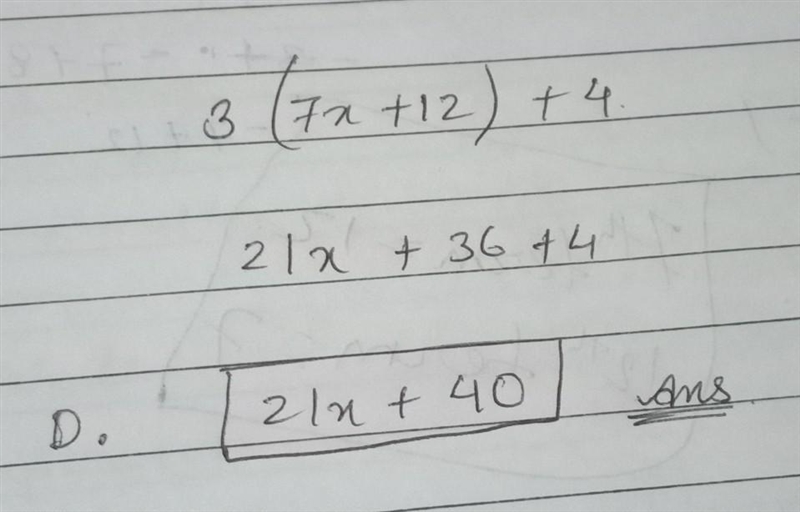 3 (7x + 12) + 4.
21x + 36 + 4
D. 21x + 40 Ans.